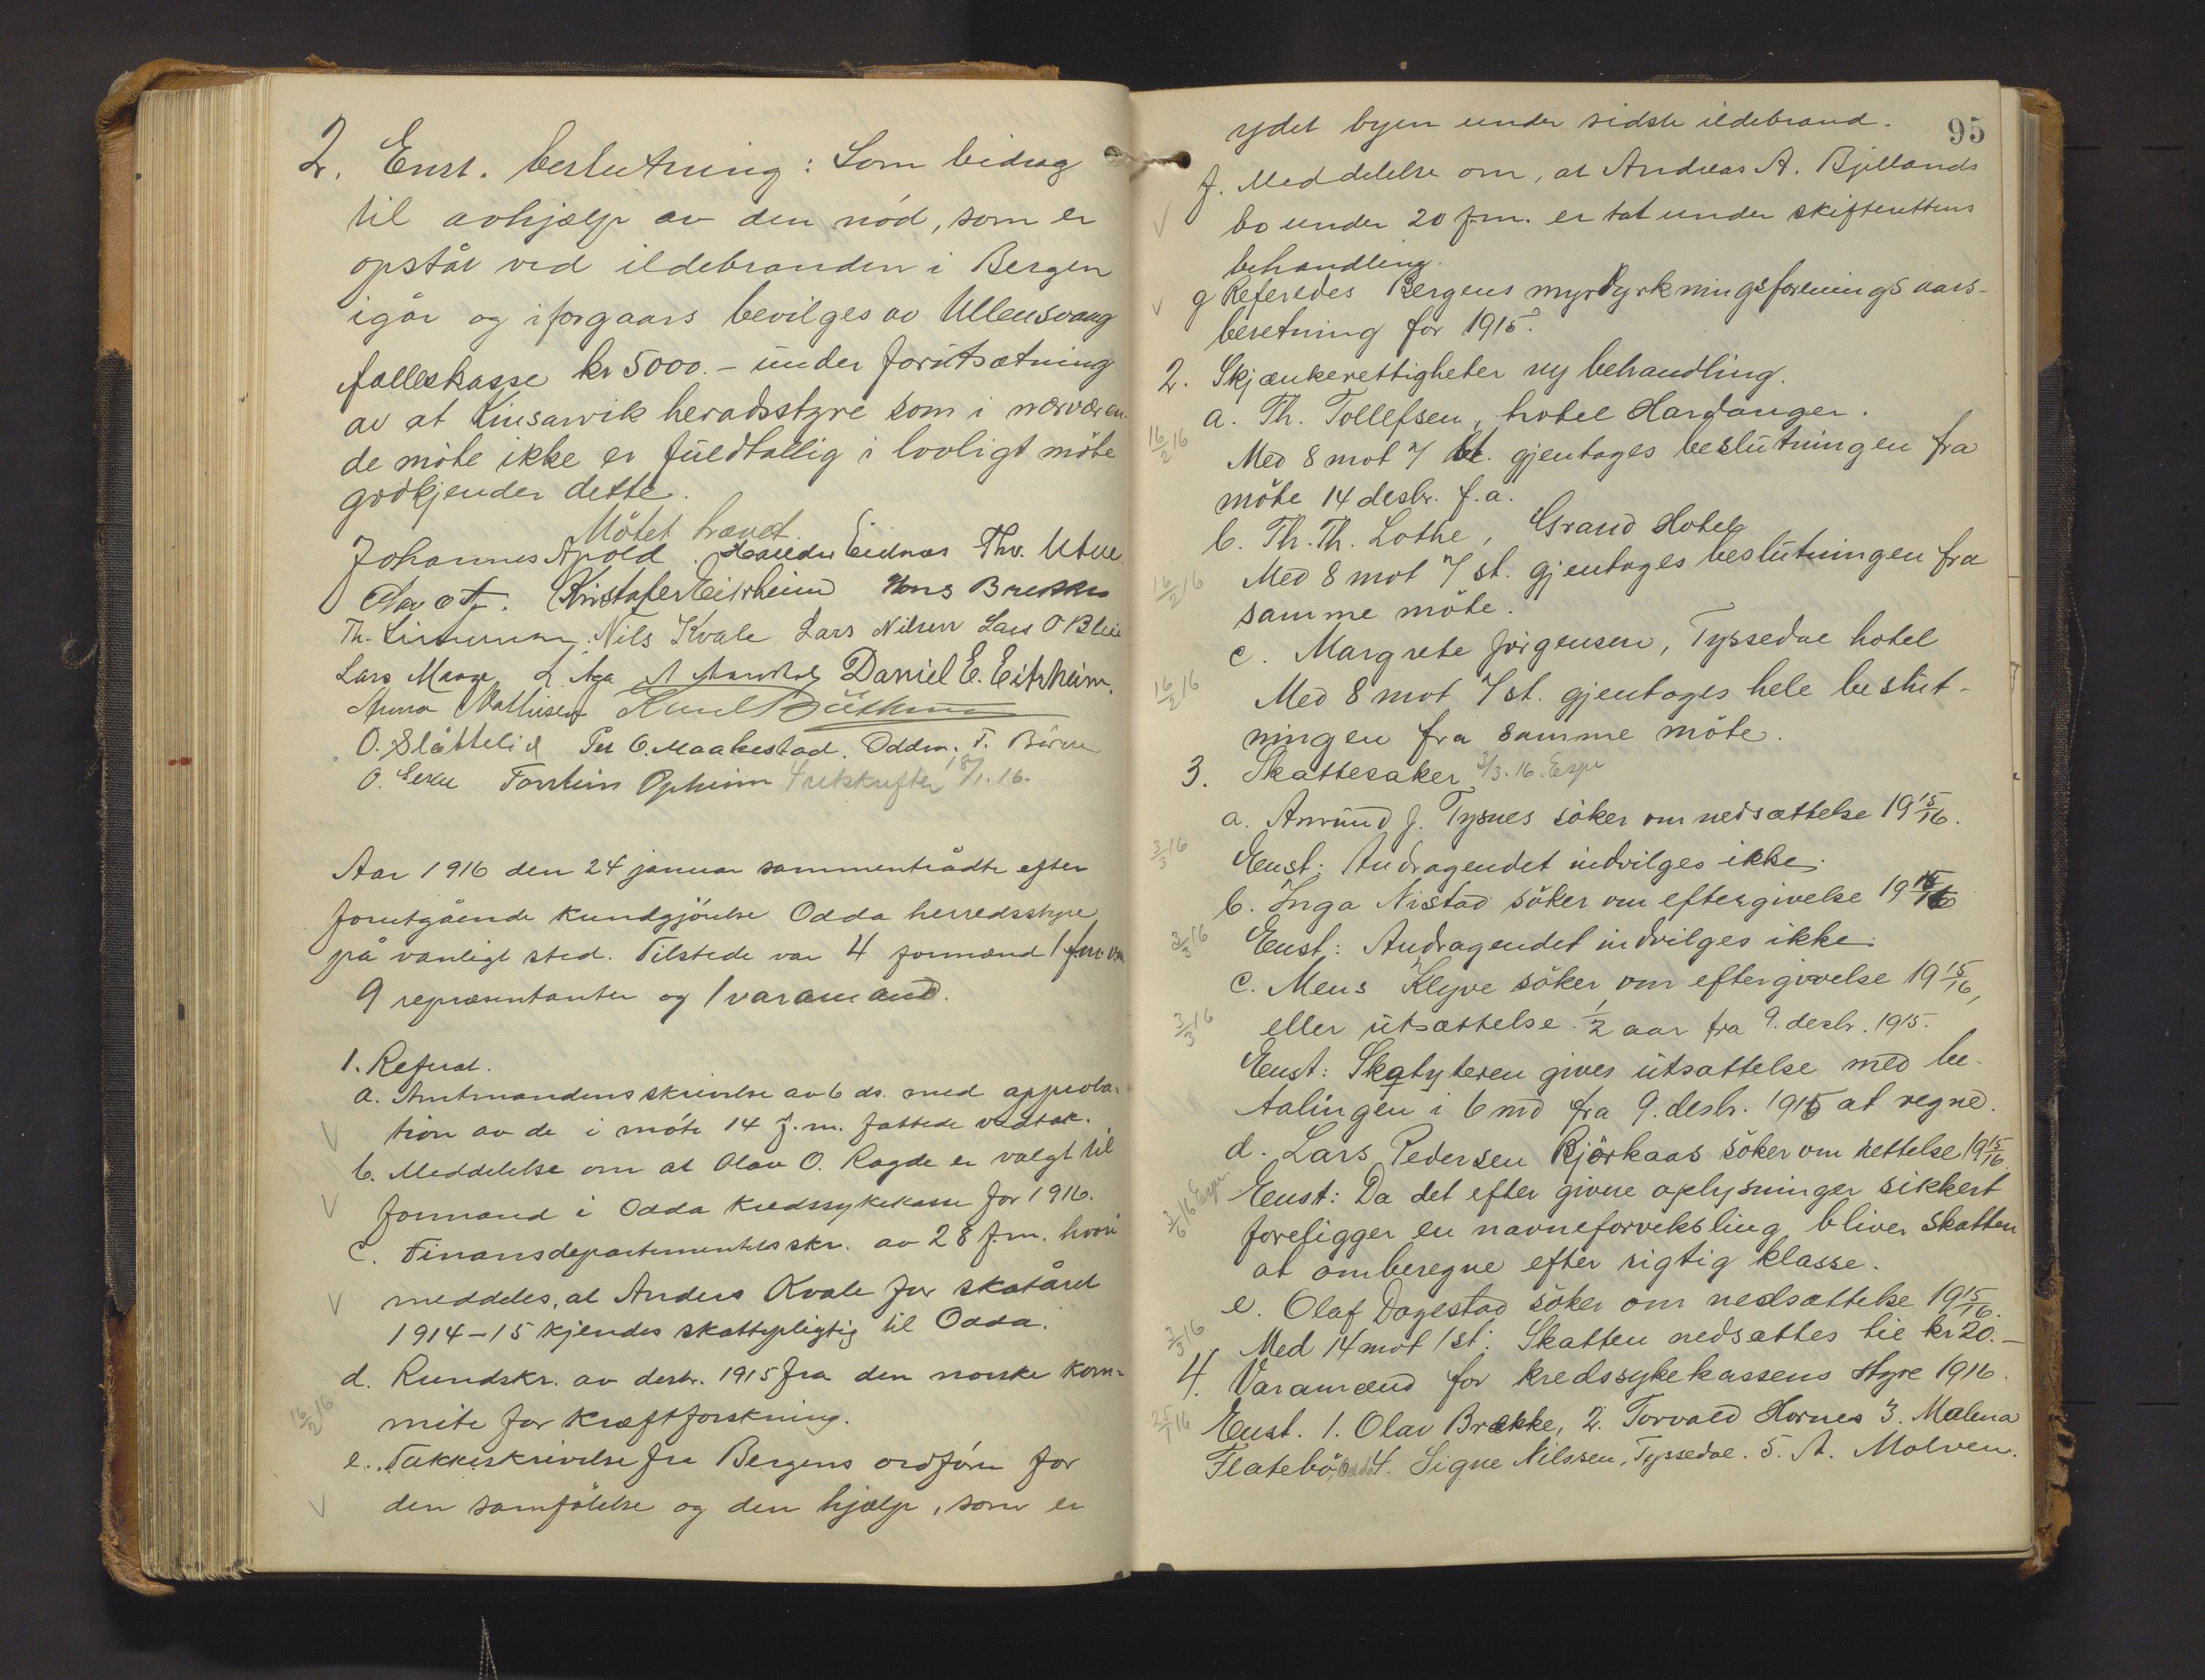 2. Enst. beslutning: Som bidrag
til avhjælp av den nöd, som er
opståt ved ildebranden i Bergen
igår og iforgaars bevilges av Ullensvang
fælleskasse kr 5000.- under forutsætning
av at Kinsarvik heradsstyre som i nærværen-
de möte ikke er fuldtallig i lovligt möte
godkjender dette.
Mötet hævet.
Johannes Apold. Eidnes Thv. Utne.
Kristofer Eitrheim Hans Brekke
Th. Nils Kvale Lars Nilsen Lars O Bleie
Lars Maage L Aga Daniel E. Eitrheim.
Anna Mathisen Knud
O. Slåttelid Per O. Maakestad. Oddm. T. Börve
O. Torstein Opheim Utskrifter 18/1. 16.
Aar 1916 den 24 januar sammentrådte efter
forutgående kundgjörelse Odda herredsstyre
på vanligt sted. Tilstede var 4 formænd 1 form.v.m
9 repræsentanter og 1 varamand.
1. Referat.
a. Amtmandens skrivelse av 6 ds. med approba-
tion av de i möte 14 f.m. fattede vedtak.
b. Meddelelse om at Olav O. Ragde er valgt til
formand i Odda kredssykekasse for 1916.
c. Finansdepartementets skr. av 28 f.m. hvori
meddeles, at Anders Kvale for skatåret
1914-15 kjendes skattepligtig til Odda.
d. Rundskr. av desbr. 1915 fra den norske kom-
16/2 16 mite for kræftforskning.
e. Takkeskrivelse fra Bergens ordförer for
den samfölelse og den hjælp, som er
95
ydet byen under sidste ildebrand.
f. Meddelelse om, at Andreas A. Bjellands
bo under 20 f.m. er tat under skifterettens
behandling.
g Referedes Bergens myrdyrkningsforenings aars-
beretning for 1915.
2. Skjænkerettigheter ny behandling.
a. Th. Tollefsen, hotel Hardanger.
16/2 16 Med 8 mot 7 st. gjentages beslutningen fra
möte 14 desbr. f.a.
b. Th. Th. Lothe, Grand Hotel
16/2 16 Med 8 mot 7 st. gjentages beslutningen fra
samme möte.
c. Margrete Jörgensen, Tyssedal hotel
16/2 16 Med 8 mot 7 st. gjentages hele beslut-
ningen fra samme möte.
3. Skattesaker 3/3. 16. Espe
a. Amund J. Tysnes söker om nedsættelse 1915/16.
3/3 16 Enst: Andragendet indvilges ikke.
b. Inga Nistad söker om eftergivelse 1915/16
3/3 16 Enst: Andragendet indvilges ikke.
c. Mens Klyve söker om eftergivelse 1915/16,
3/3 16 eller utsættelse 1/2 aar fra 9. desbr. 1915.
Enst: Skatyteren gives utsættelse med be-
talingen i 6 md fra 9. desbr. 1915 at regne.
d. Lars Pedersen Björkaas söker om rettelse 1915/16
Enst: Da det efter givne oplysninger sikkert
foreligger en navneforveksling bliver skatten
at omberegne efter rigtig klasse.
e. Olaf Dagestad söker om nedsættelse 1915/16.
3/3 16 Med 14 mot 1 st: Skatten nedsættes til kr 20.-
4. Varamænd for kredssykekassens styre 1916.
25/1 16 Enst. 1. Olav Brække, 2. Torvald Hornes 3. Malena
Flatebö, Odda 4. Signe Nilssen, Tyssedal. 5. A. Molven.